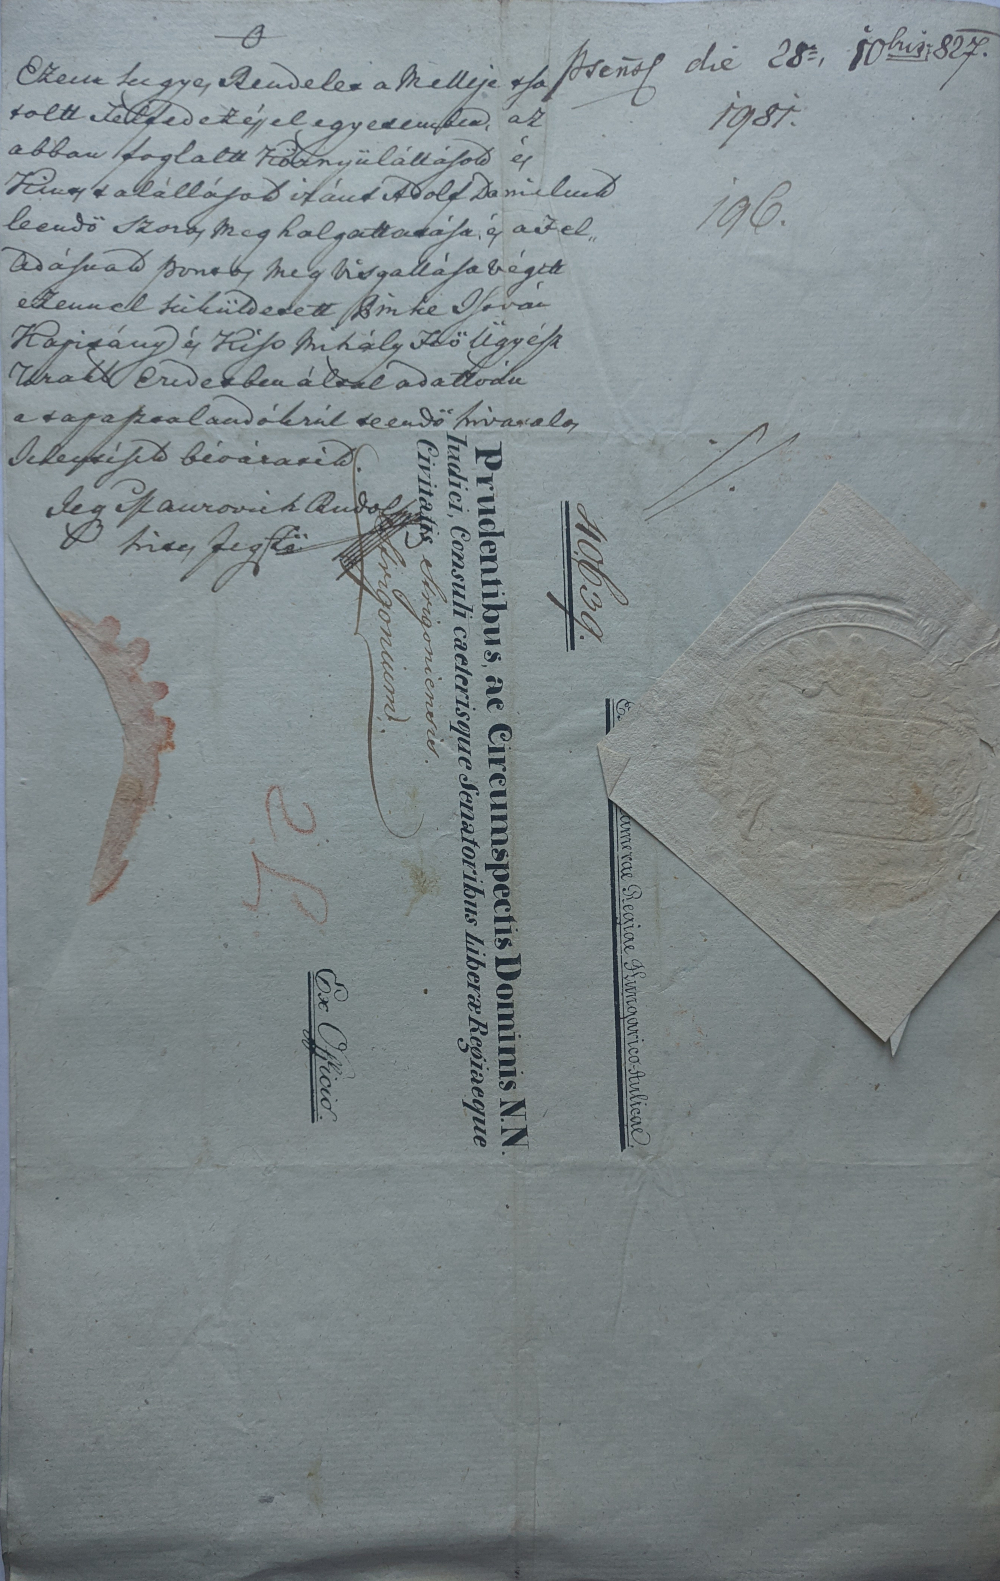 Ezen kegyes Rendelet a Melleje tsa
tolt Felfedezéssel egyetemben, az
abban foglaltt Környülállások és
Kintstalállások iránt Adolf Danielnek
leendő szoros Meghalgattatása, és a Fel„
Adásnak pontos Meg Visgállása végett
ezennel kiküldetett Imhe István
Kapitány és Kiss Mihály Fő Ügyész
Urakk Eredetben által adattván
a tapasztalandókrúl teendő hivatalos
Jelentések béváratik.
Jeg Maurovich Rudolf
hites Jegző
Psentt die 28a, 10bris 827.
1981.
196.
Prudentibus, ac Circumspectis Dominis N.N.
Iudici, Consuli caeterisque Senatoribus Liberæ Regiaeque
Civitatis Strigoniensis.
Strigonium.
Ex Officio.
40639.
E. Camerae Regiae Hungarico-Aulicae.